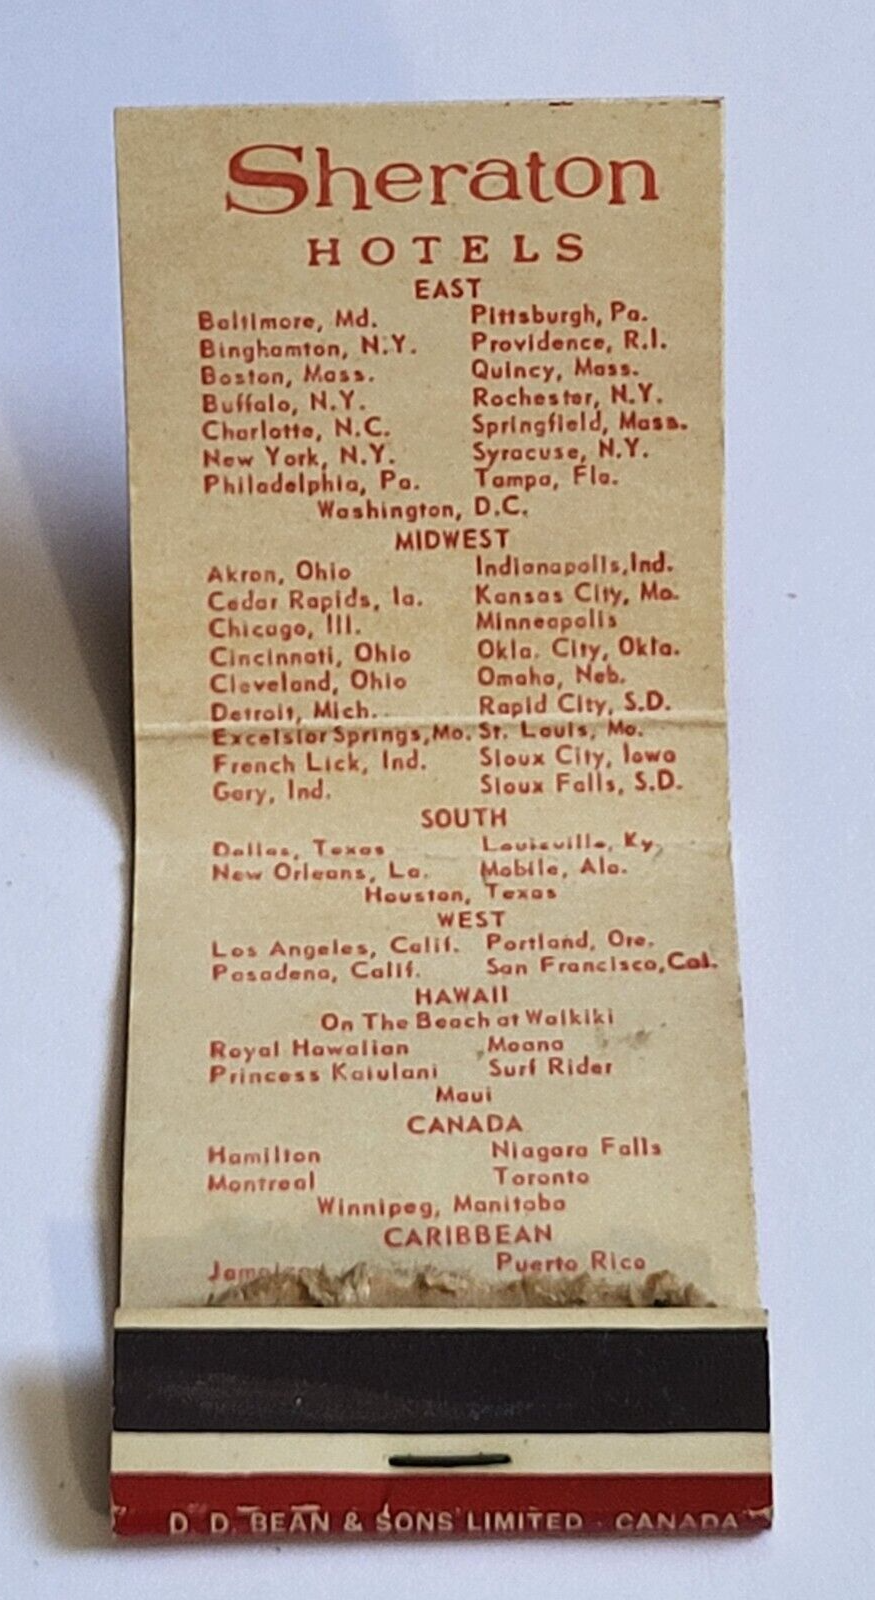 Sheraton
HOTELS
EAST
Baltimore, Md. Pittsburgh, Pa.
Binghamton, N.Y. Providence, R.I.
Boston, Mass. Quincy, Mass.
Buffalo, N.Y. Rochester, N.Y.
Charlotte, N.C. Springfield, Mass.
New York, N.Y. Syracuse, N.Y.
Philadelphia, Pa. Tampa, Fla.
Washington, D.C.
MIDWEST
Akron, Ohio Indianapolis,Ind.
Cedar Rapids, Ia. Kansas City, Mo.
Chicago, Ill. Minneapolis
Cincinnati, Ohio Okla. City, Okla.
Cleveland, Ohio Omaha, Neb.
Detroit, Mich. Rapid City, S.D.
Excelsior Springs,Mo. St. Louis, Mo.
French Lick, Ind. Sioux City, Iowa
Gary, Ind. Sioux Falls, S.D.
SOUTH
Dallas, Texas Louisville, Ky.
New Orleans, La. Mobile, Ala.
Houston, Texas
WEST
Los Angeles, Calif. Portland, Ore.
Pasadena, Calif. San Francisco,Cal.
HAWAII
On The Beach at Waikiki
Royal Hawaiian Moana
Princess Kaiulani Surf Rider
Maui
CANADA
Hamilton Niagara Falls
Montreal Toronto
Winnipeg, Manitoba
CARIBBEAN
Jamaica Puerto Rico
D. D. BEAN & SONS LIMITED · CANADA